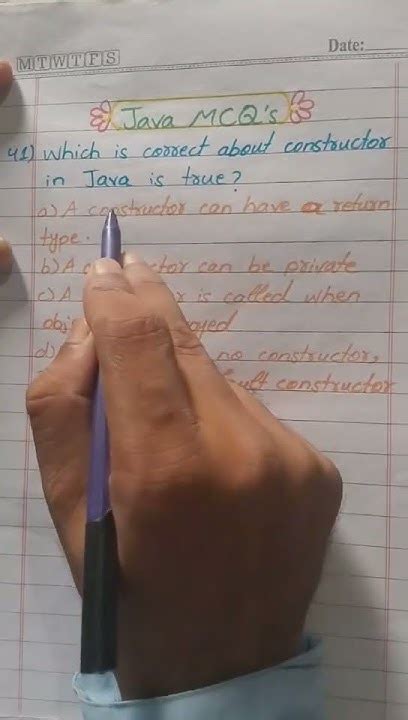 M T W T F S
Date:
Java MCQ's
41) Which is correct about constructor
in Java is true?
a) A constructor can have a return
type.
b) A tor can be private
c) A is called when
obj oyed
d) no constructor,
ult constructor